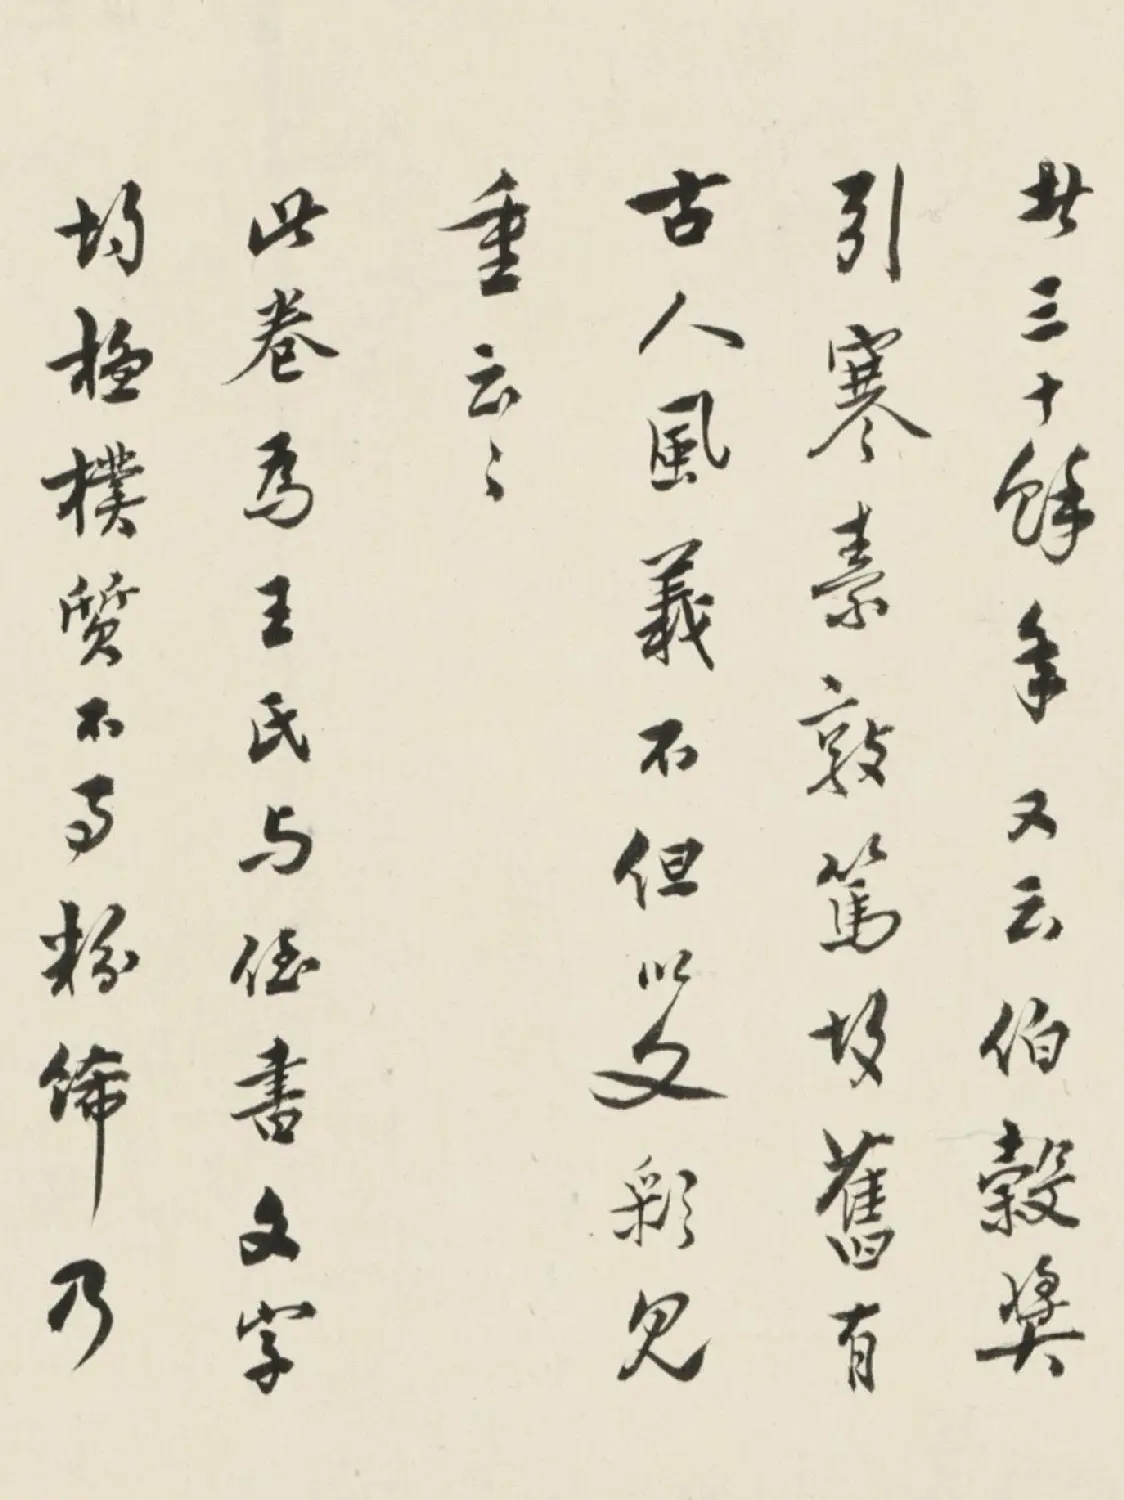 三十餘年又云伯穀奬
引寒素敦篤故舊有
古人風義不但以文彩見
重云〻
此卷為王氏与侄書文字
均極樸質不事粉飾乃